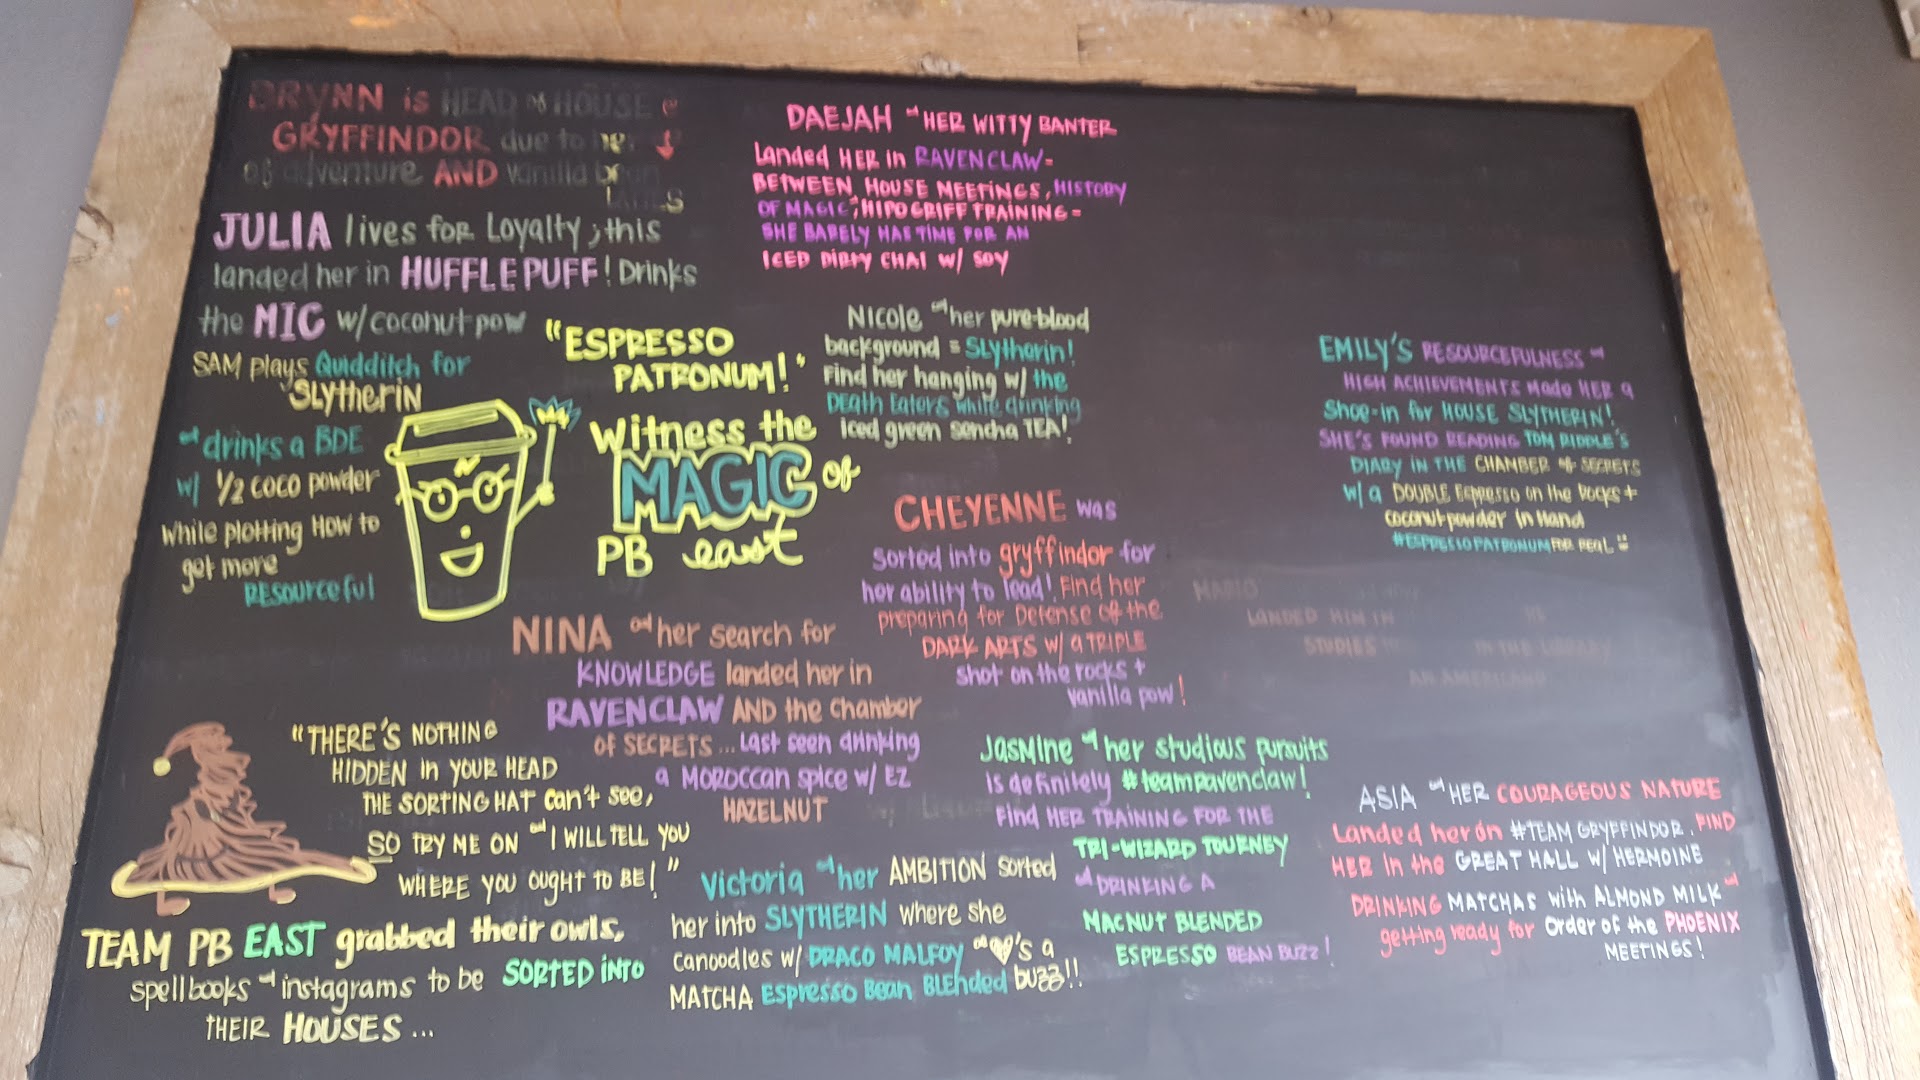 BRYNN is HEAD of HOUSE
GRYFFINDOR due to her
of adventure AND vanilla bean
LATTES
JULIA lives for Loyalty; this
landed her in HUFFLEPUFF! Drinks
the MIC w/ coconut pow
SAM plays Quidditch for
Slytherin
and drinks a BDE
w/ 1/2 coco powder
while plotting How to
get more
RESourceful
"ESPRESSO
PATRONUM!"
Witness the
MAGIC of
PB east
DAEJAH and HER WITTY BANTER
Landed HER in RAVENCLAW-
BETWEEN HOUSE MEETINGS, HISTORY
OF MAGIC, HIPOGRIFF TRAINING-
SHE BARELY HAS TIME FOR AN
ICED DIRTY CHAI W/ SOY
Nicole and her pure-blood
background = Slytherin!
Find her hanging w/ the
DEath Eaters while drinking
Iced green sencha TEA!
CHEYENNE was
Sorted into gryffindor for
her ability to lead! Find her
preparing for Defense of the
DARK ARTS w/ a TRIPLE
Shot on the rocks +
vanilla pow!
EMILY'S RESOURCEFULNESS and
HIGH ACHIEVEMENTS made HER a
Shoe-in for HOUSE SLYTHERIN!
SHE'S FOUND READING TOM RIDDLE'S
DIARY IN THE CHAMBER of SECRETS
w/ a DOUBLE Espresso on the rocks +
coconut powder in Hand
#ESPRESSOPATRONUM FOR REAL
MARIO
LANDED HIM IN
STUDIES IN THE LIBRARY
AN AMERICANO
NINA and her search for
KNOWLEDGE landed her in
RAVENCLAW AND the chamber
of SECRETS... Last seen drinking
a MOROCCAN spice w/ EZ
HAZELNUT
JASMINE and her studious pursuits
is definitely #teamravenclaw!
Find HER TRAINING FOR THE
TRI-WIZARD TOURNEY
and DRINKING A
MACNUT BLENDED
ESPRESSO BEAN BUZZ!
ASIA and HER COURAGEOUS NATURE
Landed her on #TEAM GRYFFINDOR. FIND
HER in the GREAT HALL w/ HERMOINE
DRINKING MATCHAS with ALMOND MILK and
getting ready for Order of the PHOENIX
MEETINGS!
"THERE'S NOTHING
HIDDEN in YOUR HEAD
THE SORTING HAT can't see,
SO TRY ME ON and I WILL TELL YOU
WHERE YOU OUGHT TO BE!"
Victoria and her AMBITION Sorted
her into SLYTHERIN where she
canoodles w/ DRACO MALFOY and ♡'s a
MATCHA Espresso Bean BLEnded buzz!!
TEAM PB EAST grabbed their owls,
spellbooks and instagrams to be SORTED iNTO
THEIR HOUSES...